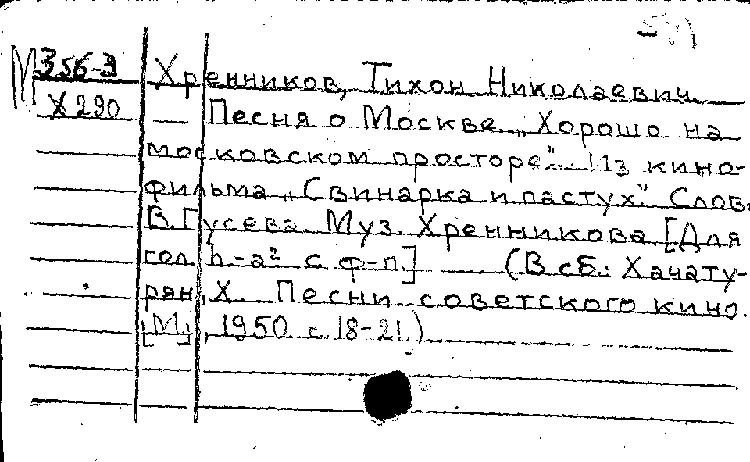 М 356-3 Хренников, Тихон Николаевич
Х 290 — Песня о Москве „Хорошо на
московском просторе". Из кино-
фильма „Свинарка и пастух". Слов.
В. Гусева. Муз. Хренникова [Для
гол. h.-а² с ф-п.] (В сб.: Хачату-
рян, Х. Песни советского кино.
[М], 1950 с. 18-21.)